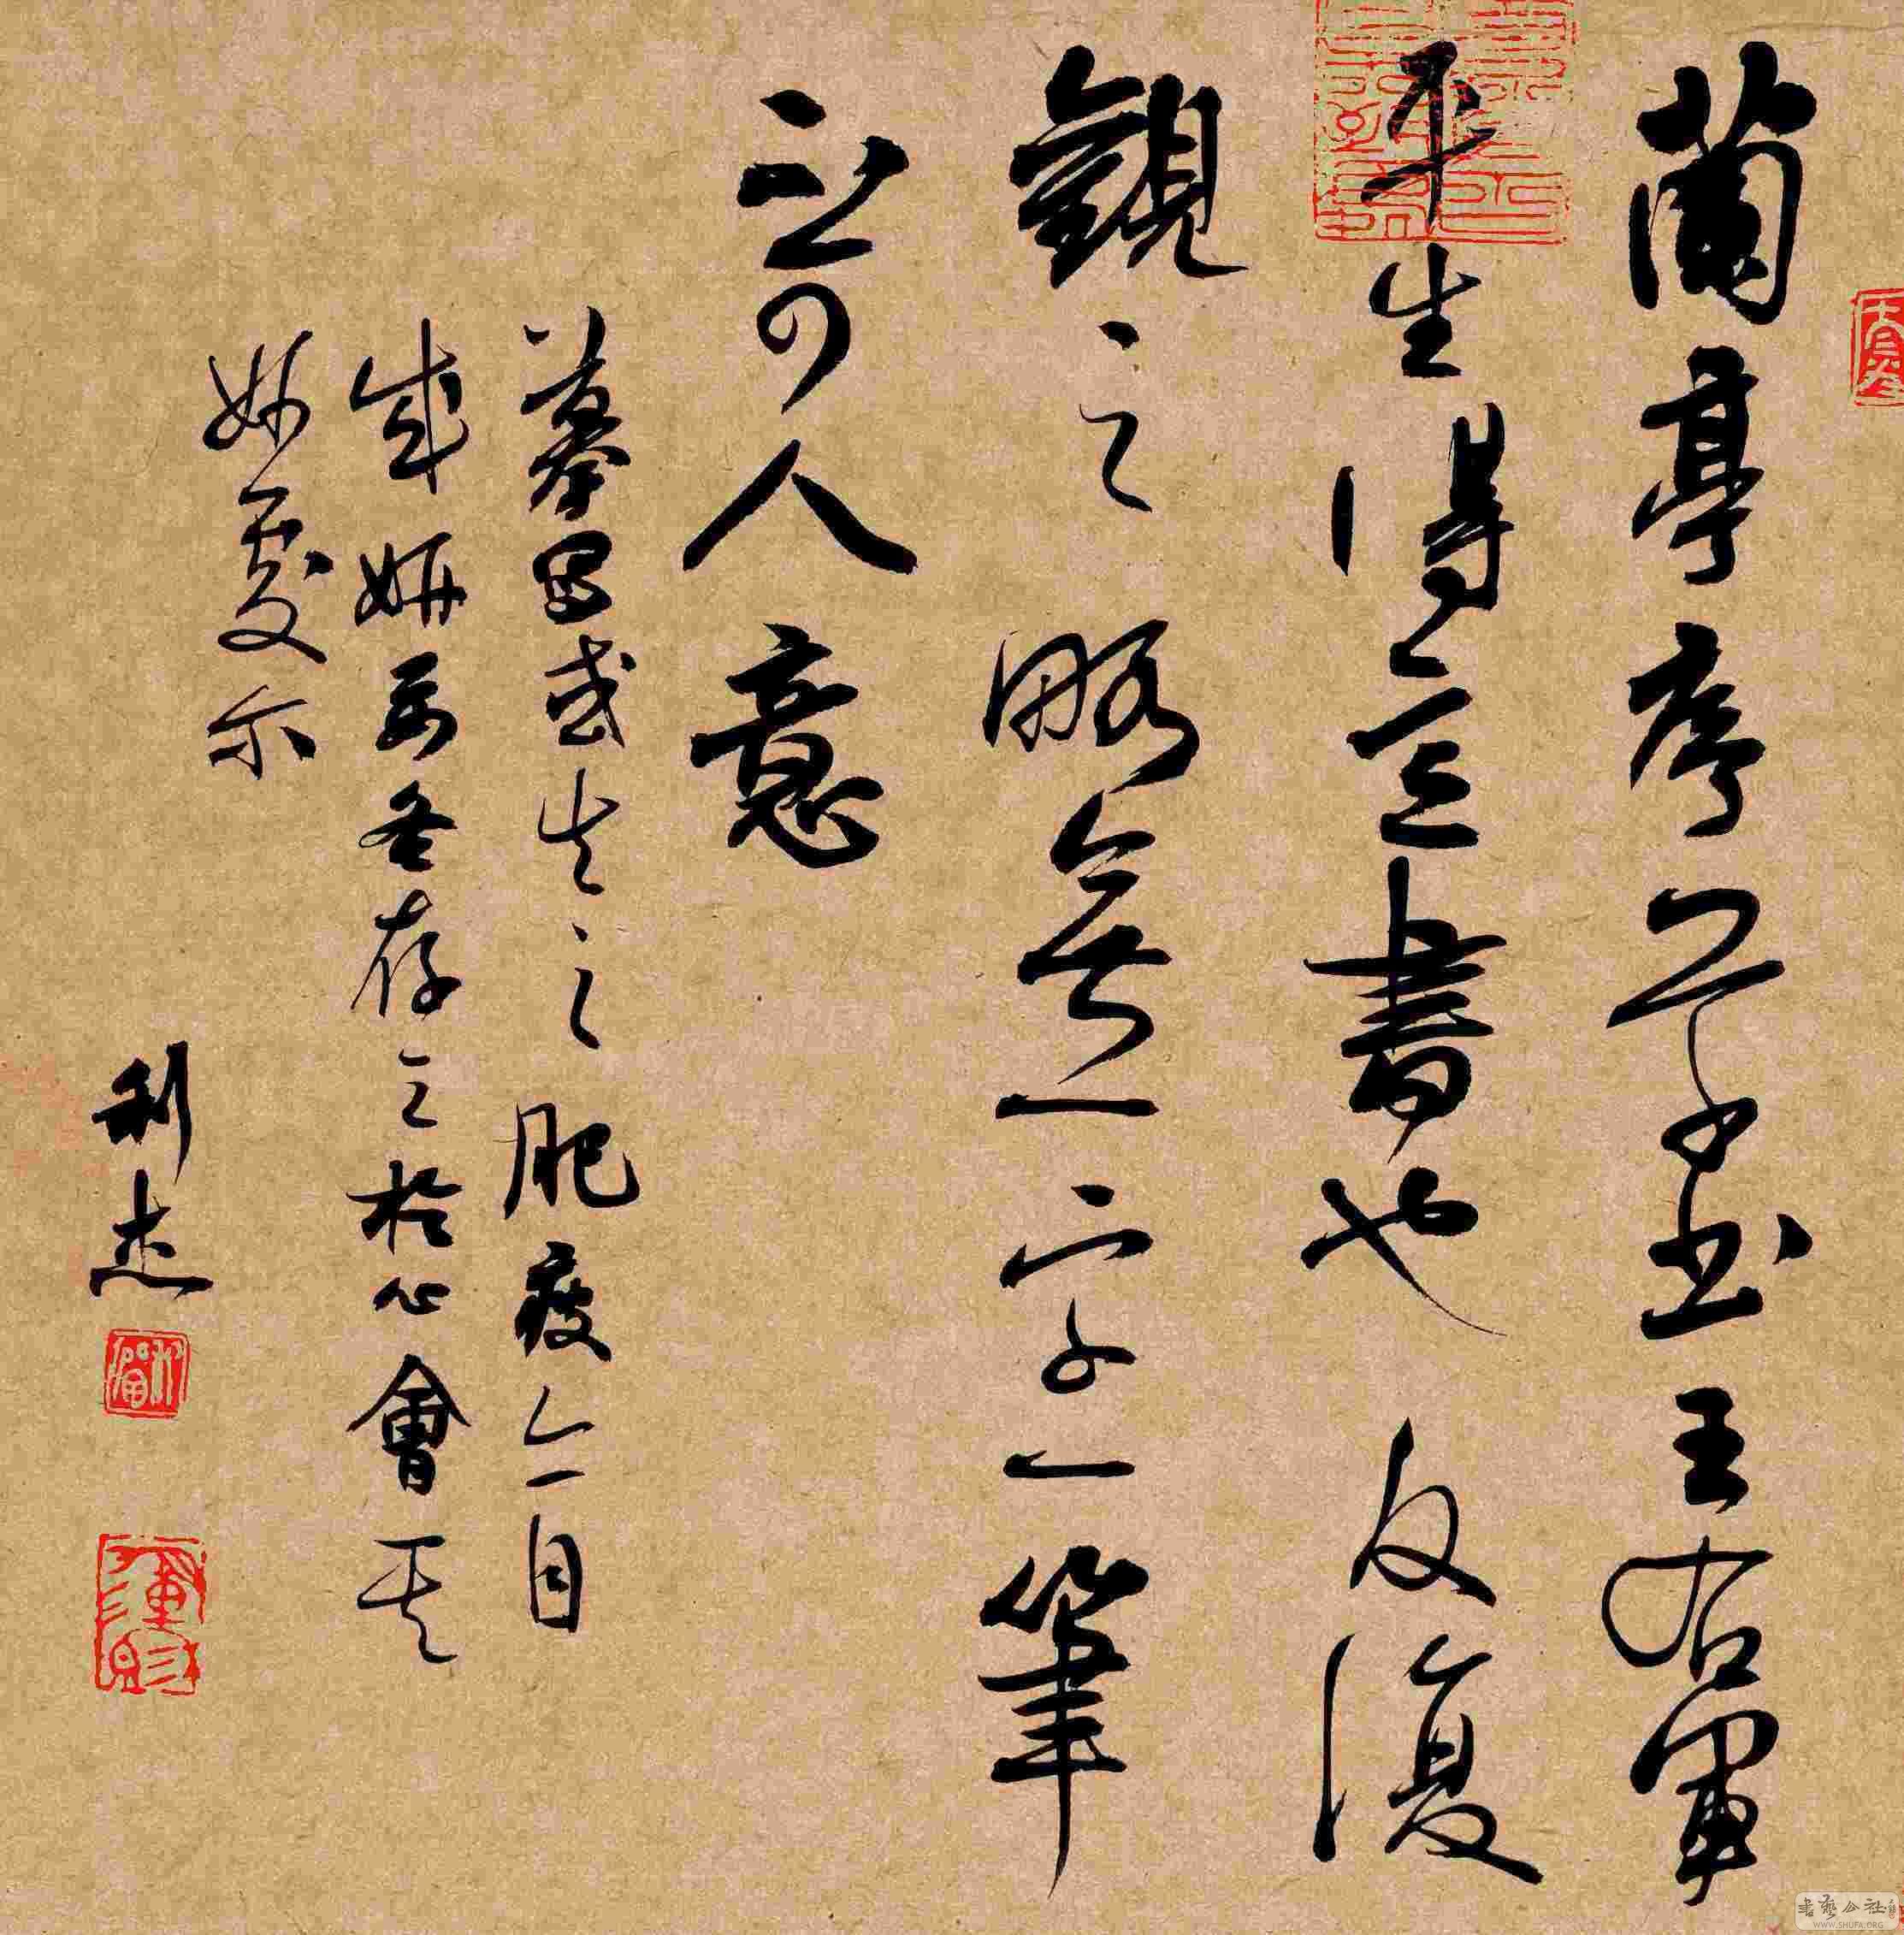 蘭亭序草王右軍
平生得意書也反復
觀之略無一字一筆
不可人意
摹写或失之肥瘦亦自
成妍要各存之於心會其
妙處尔
利杰
書藝公社
WWW.SHUFA.ORG